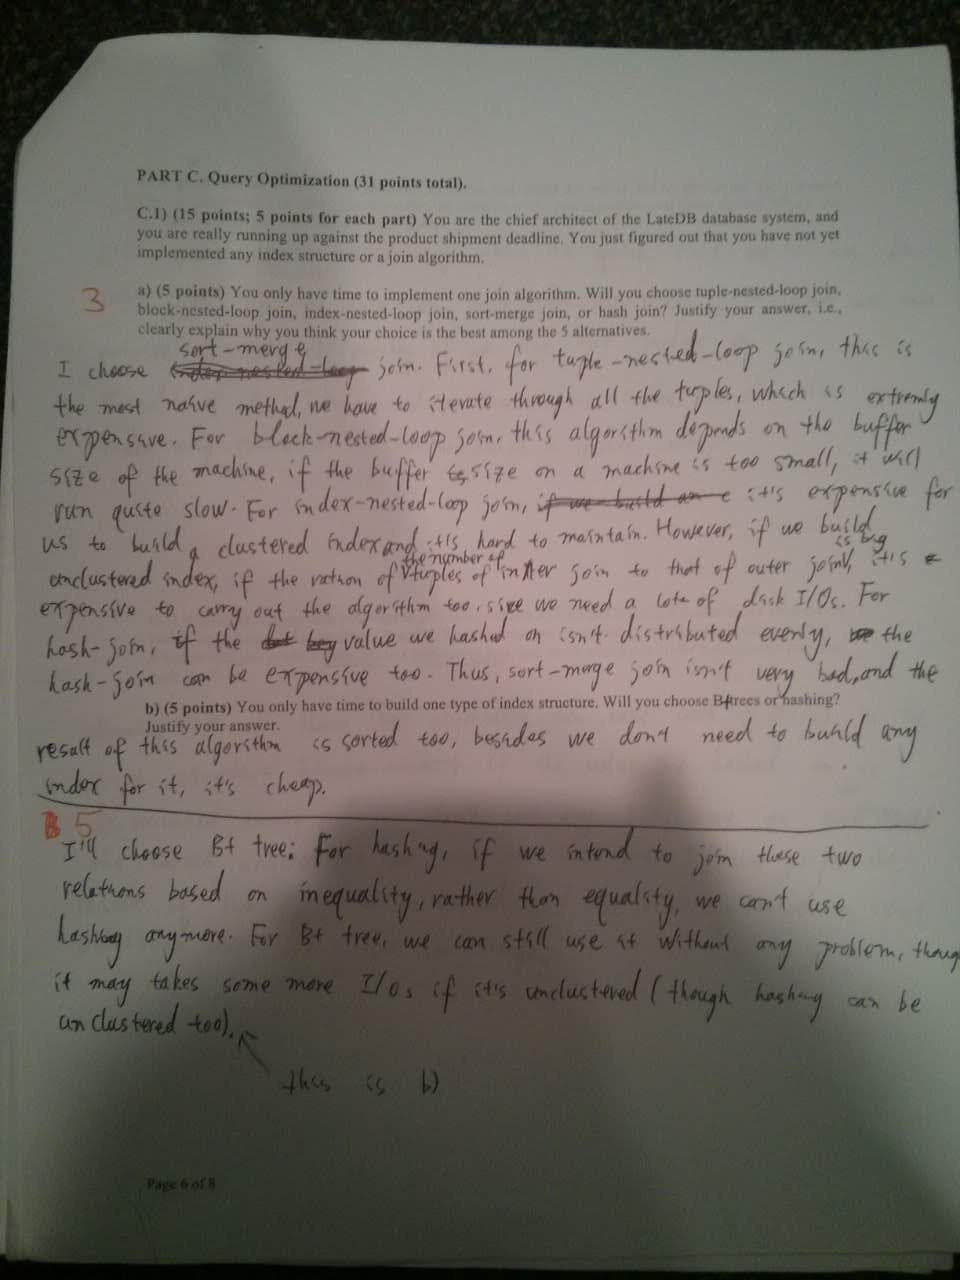 PART C. Query Optimization (31 points total).
C.1) (15 points; 5 points for each part) You are the chief architect of the LateDB database system, and
you are really running up against the product shipment deadline. You just figured out that you have not yet
implemented any index structure or a join algorithm.
3
a) (5 points) You only have time to implement one join algorithm. Will you choose tuple-nested-loop join,
block-nested-loop join, index-nested-loop join, sort-merge join, or hash join? Justify your answer, i.e.,
clearly explain why you think your choice is the best among the 5 alternatives.
sort-merge
I choose join. First, for tuple-nested-loop join, this is
the most naive method, we have to iterate through all the tuples, which is extremly
expensive. For block-nested-loop join, this algorithm depends on the buffer
size of the machine, if the buffer size on a machine is too small, it will
run quite slow. For index-nested-loop join, it's expensive for
us to build a clustered index and it's hard to maintain. However, if we build
unclustered index, if the ration of the number of tuples of inner join to that of outer join is big, it's
expensive to carry out the algorithm too, since we need a lots of disk I/Os. For
hash-join, if the value we hashed on isn't distributed evenly, the
hash-join can be expensive too. Thus, sort-merge join isn't very bad, and the
b) (5 points) You only have time to build one type of index structure. Will you choose B+trees or hashing?
Justify your answer.
result of this algorithm is sorted too, besides we don't need to build any
index for it, it's cheap.
5
I'll choose B+ tree: For hashing, if we intend to join these two
relations based on inequality, rather than equality, we can't use
hashing anymore. For B+ tree, we can still use it without any problem, though
it may takes some more I/Os if it's unclustered (though hashing can be
unclustered too).
this is b)
Page 6 of 8